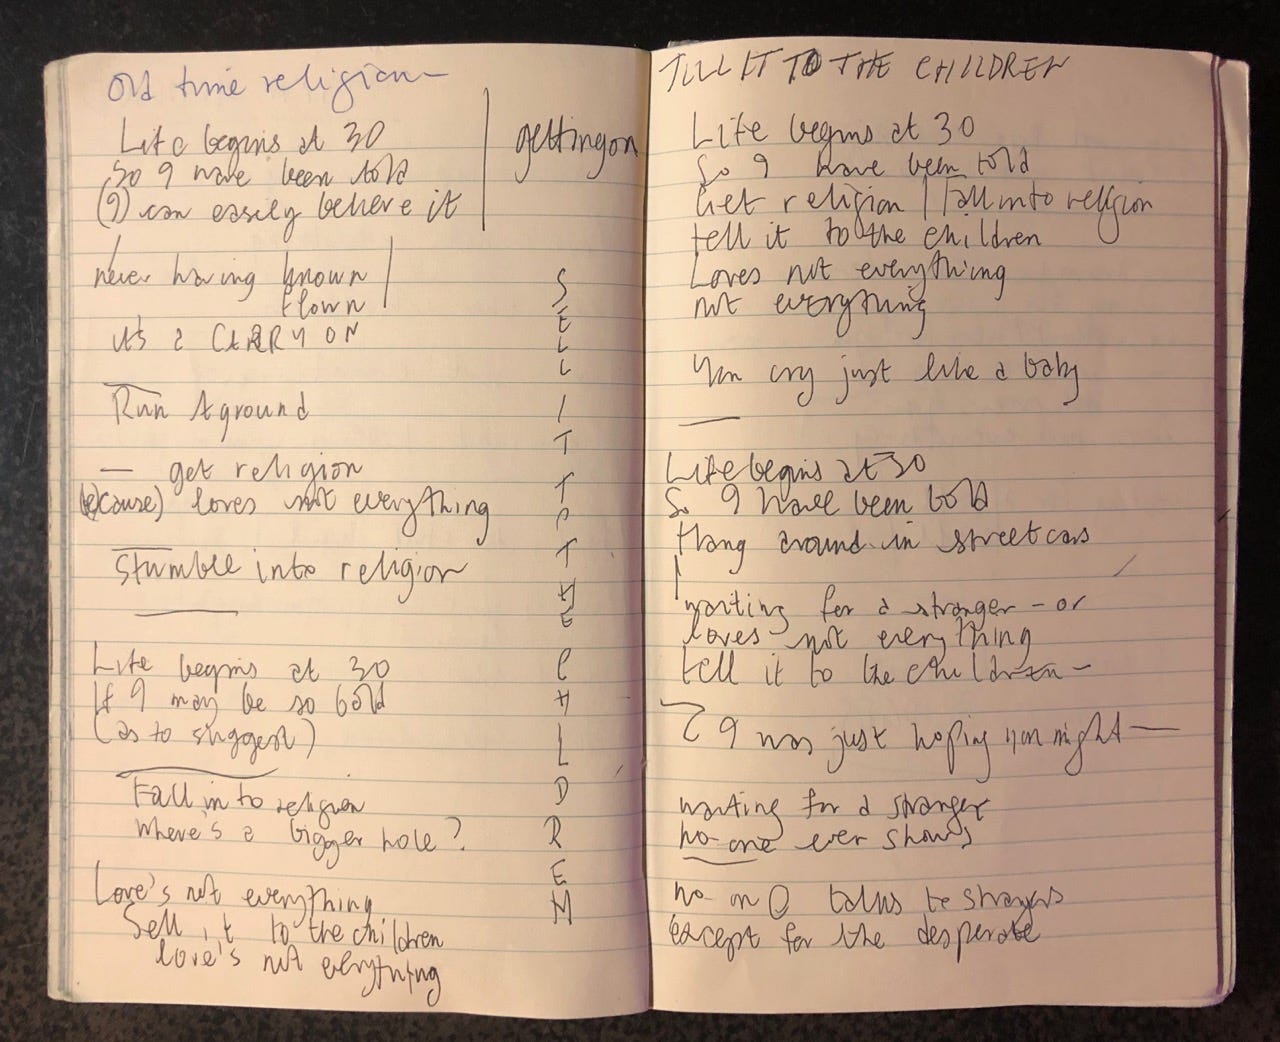 Old time religion
Life begins at 30
So I have been told
(I) can easily believe it
getting on
never having known
flown
it's a CARRY ON
Run Aground
— get religion
(be)cause) loves not everything
Stumble into religion
Life begins at 30
If I may be so bold
(as to suggest)
Fall into religion
Where's a bigger hole?
Love's not everything
Sell it to the children
love's not everything
SELL IT TO THE CHILDREN
TELL IT TO THE CHILDREN
Life begins at 30
So I have been told
Get religion | fall into religion
tell it to the children
Loves not everything
not everything
You cry just like a baby
Life begins at 30
So I have been told
Hang around in streetcars
waiting for a stranger - or
loves not everything
tell it to the children -
I was just hoping you might —
waiting for a stranger
no-one ever shows
no-one talks to strangers
except for the desperate